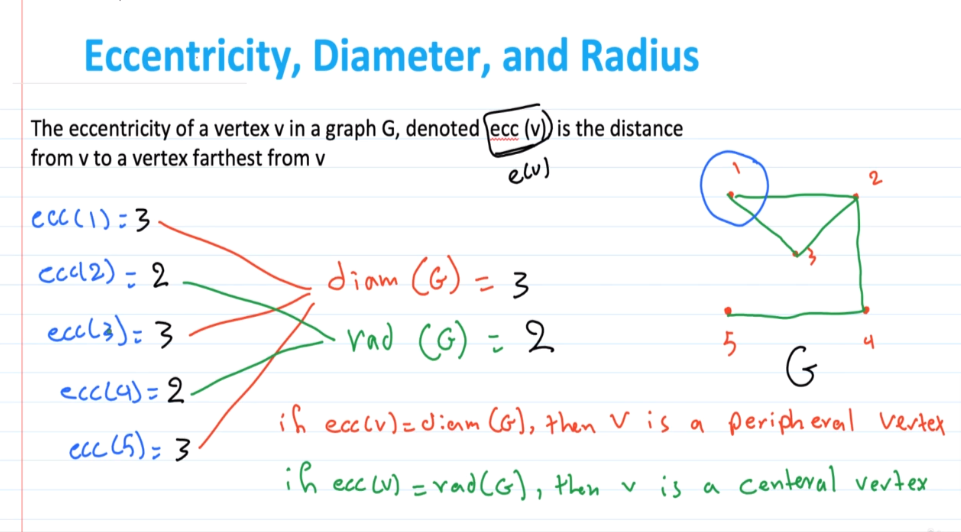 Eccentricity, Diameter, and Radius
The eccentricity of a vertex v in a graph G, denoted ecc (v) is the distance
from v to a vertex farthest from v
e(v)
1
2
3
5
4
G
ecc(1) = 3
ecc(2) = 2
ecc(3) = 3
ecc(4) = 2
ecc(5) = 3
diam (G) = 3
rad (G) = 2
if ecc(v) = diam (G), then v is a peripheral vertex
if ecc (v) = rad(G), then v is a centeral vertex